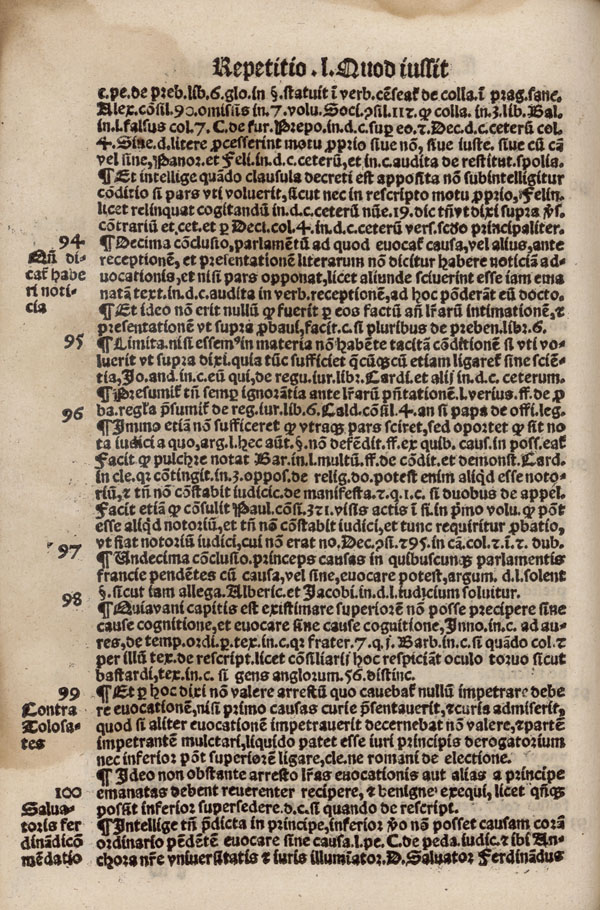 Repetitio . l. Quod iussit
c.pe.de preb.lib.6.glo.in §.statuit ī verb.cēseat de colla.ī prag.sanc.
Alex.cōsil.90.omissis in.7.volu.Soci.ꝯsil.112.ꝙ colla. in.3.lib.Bal.
in.l.falsus col.7. C.de fur.Prepo.in.d.c.suꝑ eo.⁊ Dec.d.c.ceterū col.
4. Sine.d.litere ꝓcesserint motu ꝓprio siue nō, siue iuste. siue cū cā
vel sine, Panor.et Feli.in.d.c.ceterū, et in.c.audita de restitut.spolia.
¶ Et intellige quādo clausula decreti est apposita nō subintelligitur
cōditio si pars vti voluerit, sicut nec in rescripto motu ꝓprio, Felin.
licet relinquat cogitandū in.d.c.ceterū nūe.19.dic tn̄ vt dixi supra
contrariū et.cet.et ꝑ Deci.col.4.in.d.c.ceterū vers.scdo principaliter.
94
Qn̄ di-
cat habe
ri noti-
cia
¶ Decima cōclusio, parlamentū ad quod euocat causa, vel alius, ante
receptionē, et presentationē literarum nō dicitur habere noticiā ad-
uocationis, et nisi pars opponat, licet aliunde sciuerint esse iam ema
natā text.in.d.c.audita in verb.receptionē, ad hoc pōderāt eū docto.
¶ Et ideo nō erit nullū ꝙ fuerit ꝑ eos factū an̄ lr̄arū intimationē, ⁊
presentationē vt supra ꝓbaui, facit.c.si pluribus de preben.libr.6.
95
¶ Limita.nisi essem⁹ in materia nō habēte tacitā cōditionē si vti vo-
luerit vt supra dixi.quia tūc sufficiet ꝙcūqꝫ etiam ligaret sine sciē-
tia, Jo.and.in.c.eū qui, de regu.iur.libr. Cardi.et alij in.d.c. ceterum.
¶ Presumit tn̄ semꝑ ignorātia ante lr̄arū p̄ntationē.l.verius.ff.de ꝓ
ba.regla p̄sumit de reg.iur.lib.6. Cald.cōsil.4.an si papa de offi.leg.
96
¶ Immo etiā nō sufficeret ꝙ vtraqꝫ pars sciret, sed oportet ꝙ sit no
ta iudici a quo, arg.l.hec aūt.§.nō defēdit.ff.ex quib. caus.in poss.eat
Facit ꝙ pulchre notat Bar.in.l.multū.ff.de cōdit.et demonst.Card.
in cle.qr contingit.in.3.oppos.de relig.do.potest enim aliqd esse noto-
riū, ⁊ tn̄ nō cōstabit iudici.c.de manifesta.2.q.1.c.si duobus de appel.
Facit etiā ꝙ cōsulit Paul cōsi.321.visis actis ī fi.in p̄mo volu.ꝙ pōt
esse aliqd notoriū, et tn̄ nō cōstabit iudici, et tunc requiritur ꝓbatio,
vt fiat notoriū iudici, cui nō erat no. Dec.ꝯsi.195.in cā.col.2.ī.1. dub.
97
¶ Undecima cōclusio.princeps causas in quibuscunqꝫ parlamentis
francie pendētes cū causa, vel sine, euocare potest, argum. d.l.solent
§.sicut iam allega. Alberic.et Jacobi.in.d.l.iudicium soluitur.
98
¶ Quiavani capitis est existimare superiorē nō posse precipere sine
cause cognitione, et euocare sine cause cognitione, Inno.in c. ad au-
res, de temp.ordi.ꝑ.tex.in.c.qr frater.7.q.j. Barb.in.c.si quādo col.2
per illū tex.de rescript.licet cōsiliarij hoc respiciāt oculo toruo sicut
bastardi, tex.in.c. si gens anglorum.56.distinc.
99
Contra
Tolosa-
tes
¶ Et ꝑ hoc dixi nō valere arrestū quo cauebat nullū impetrare debe
re euocationē, nisi primo causas curie p̄sentauerit, ⁊ curis admiserit,
quod si aliter euocationē impetrauerit decernebat nō valere, ⁊ partē
impetrantē mulctari, liquido patet esse iuri principis derogatorium
nec inferior pōt superiorē ligare, cle.ne romani de electione.
¶ Ideo non obstante arresto lr̄as euocationis aut alias a principe
100
Salua-
toris fer
dinādicō
mēdatio
emanatas debent reuerenter recipere, ⁊ benigne exequi, licet qn̄qꝫ
possit inferior supersedere.d.c.si quando de rescript.
¶ Intellige tn̄ p̄dicta in principe, inferior vo nō posset causam corā
ordinario pēdētē euocare sine causa.l.pe.C.de peda.iudic.⁊ ibi An-
chora nr̄e vniuersitatis ⁊ iuris illumīator. D. Saluator Ferdinādus